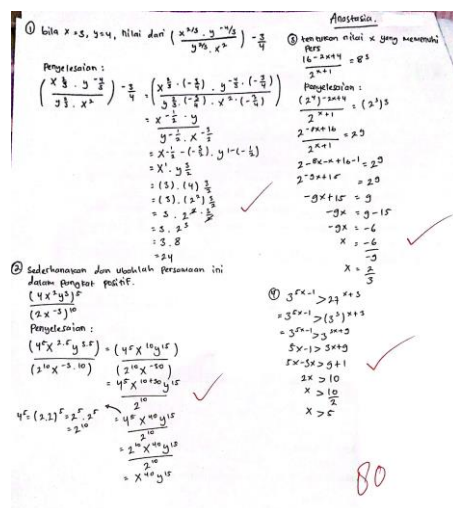 Anastasia.
① bila x = 3, y = 4, nilai dari (x^{2/3} . y^{-4/3} / y^{2/3} . x²)^{-3/4}
Penyelesaian :
= x^{-1/2} - y / y^{-1/2} . x^{-3/2}
= x^{-1/2 - (-3/2)} . y^{1-(-1/2)}
= x¹ . y^{3/2}
= (3) . (4)^{3/2}
= (3) . (2²)^{3/2}
= 3 . 2³
= 3 . 8
= 24
② Sederhanakan dan ubahlah Persamaan ini
dalam Pangkat positif.
(4x²y³)⁵
(2x⁻³)¹⁰
Penyelesaian :
(4⁵ x^{2.5} y^{3.5}) / (2¹⁰ x^{-3.10}) = (4⁵ x¹⁰ y¹⁵) / (2¹⁰ x⁻³⁰)
= 4⁵ x^{10+30} y¹⁵ / 2¹⁰
4⁵ = (2.2)⁵ = 2⁵ . 2⁵
= 2¹⁰
= 4⁵ x⁴⁰ y¹⁵ / 2¹⁰
= 2¹⁰ x⁴⁰ y¹⁵ / 2¹⁰
= x⁴⁰ y¹⁵
③ tentukan nilai x yang memenuhi
Pers
16^{-2x+4} / 2^{x+1} = 8³
Penyelesaian :
(2⁴)^{-2x+4} / 2^{x+1} = (2³)³
2^{-8x+16} / 2^{x+1} = 2⁹
2^{-8x-x+16-1} = 2⁹
2^{-9x+15} = 2⁹
-9x+15 = 9
-9x = 9-15
-9x = -6
x = -6/-9
x = 2/3
④ 3^{5x-1} > 27^{x+3}
= 3^{5x-1} > (3³)^{x+3}
= 3^{5x-1} > 3^{3x+9}
5x-1 > 3x+9
5x-3x > 9+1
2x > 10
x > 10/2
x > 5
80